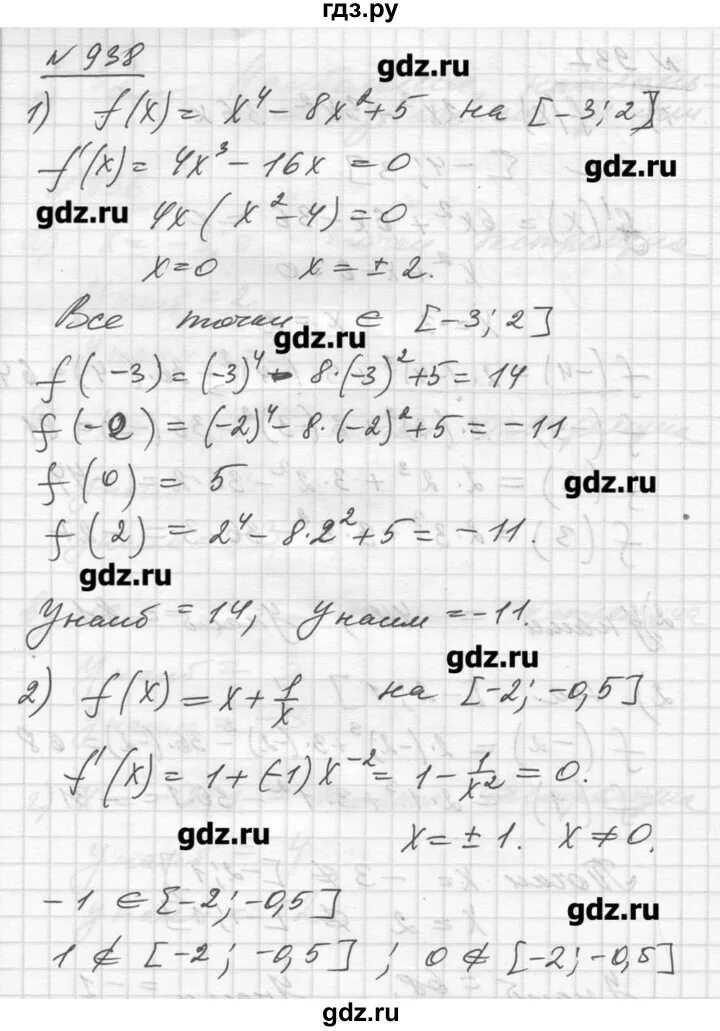 гдз.ру
N 938
gdz.ru
1) f(x) = x⁴ - 8x² + 5 на [-3; 2]
f'(x) = 4x³ - 16x = 0
gdz.ru
gdz.ru
4x(x² - 4) = 0
x = 0 x = ± 2.
Все точки ∈ [-3; 2]
gdz.ru
f(-3) = (-3)⁴ - 8·(-3)² + 5 = 14
f(-2) = (-2)⁴ - 8·(-2)² + 5 = -11
f(0) = 5
gdz.ru
f(2) = 2⁴ - 8·2² + 5 = -11.
gdz.ru
Yнаиб = 14, Yнаим = -11.
gdz.ru
2) f(x) = x + 1/x на [-2; -0,5]
f'(x) = 1 + (-1)x⁻² = 1 - 1/x² = 0.
gdz.ru
x = ± 1. x ≠ 0.
-1 ∈ [-2; -0,5]
gdz.ru
1 ∉ [-2; -0,5]; 0 ∉ [-2; -0,5]
gdz.ru